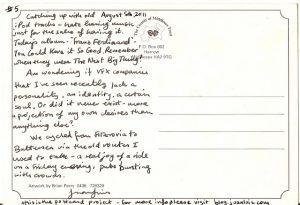 #5
Catching up with old August 5th 2011
iPod tracks - hate having music
just for the sake of having it.
Today's album: 'Franz Ferdinand
You Could Have it So Good'. Remember
when they were The Next Big Thing?
Am wondering if VFX companies
that I've seen recently lack a
personality, an identity, a certain
soul. Or did it never exist - more
a projection of my own desires than
anything else?
We cycled from Fitzrovia to
Battersea via the old routes I
used to take - a real joy of a ride
on a Friday evening, pubs bursting
with crowds.
P.O. Box 662
Harrow
Middlesex HA2 9TG
Artwork by Brian Perry
this is the postcard project - for more info please visit blog.